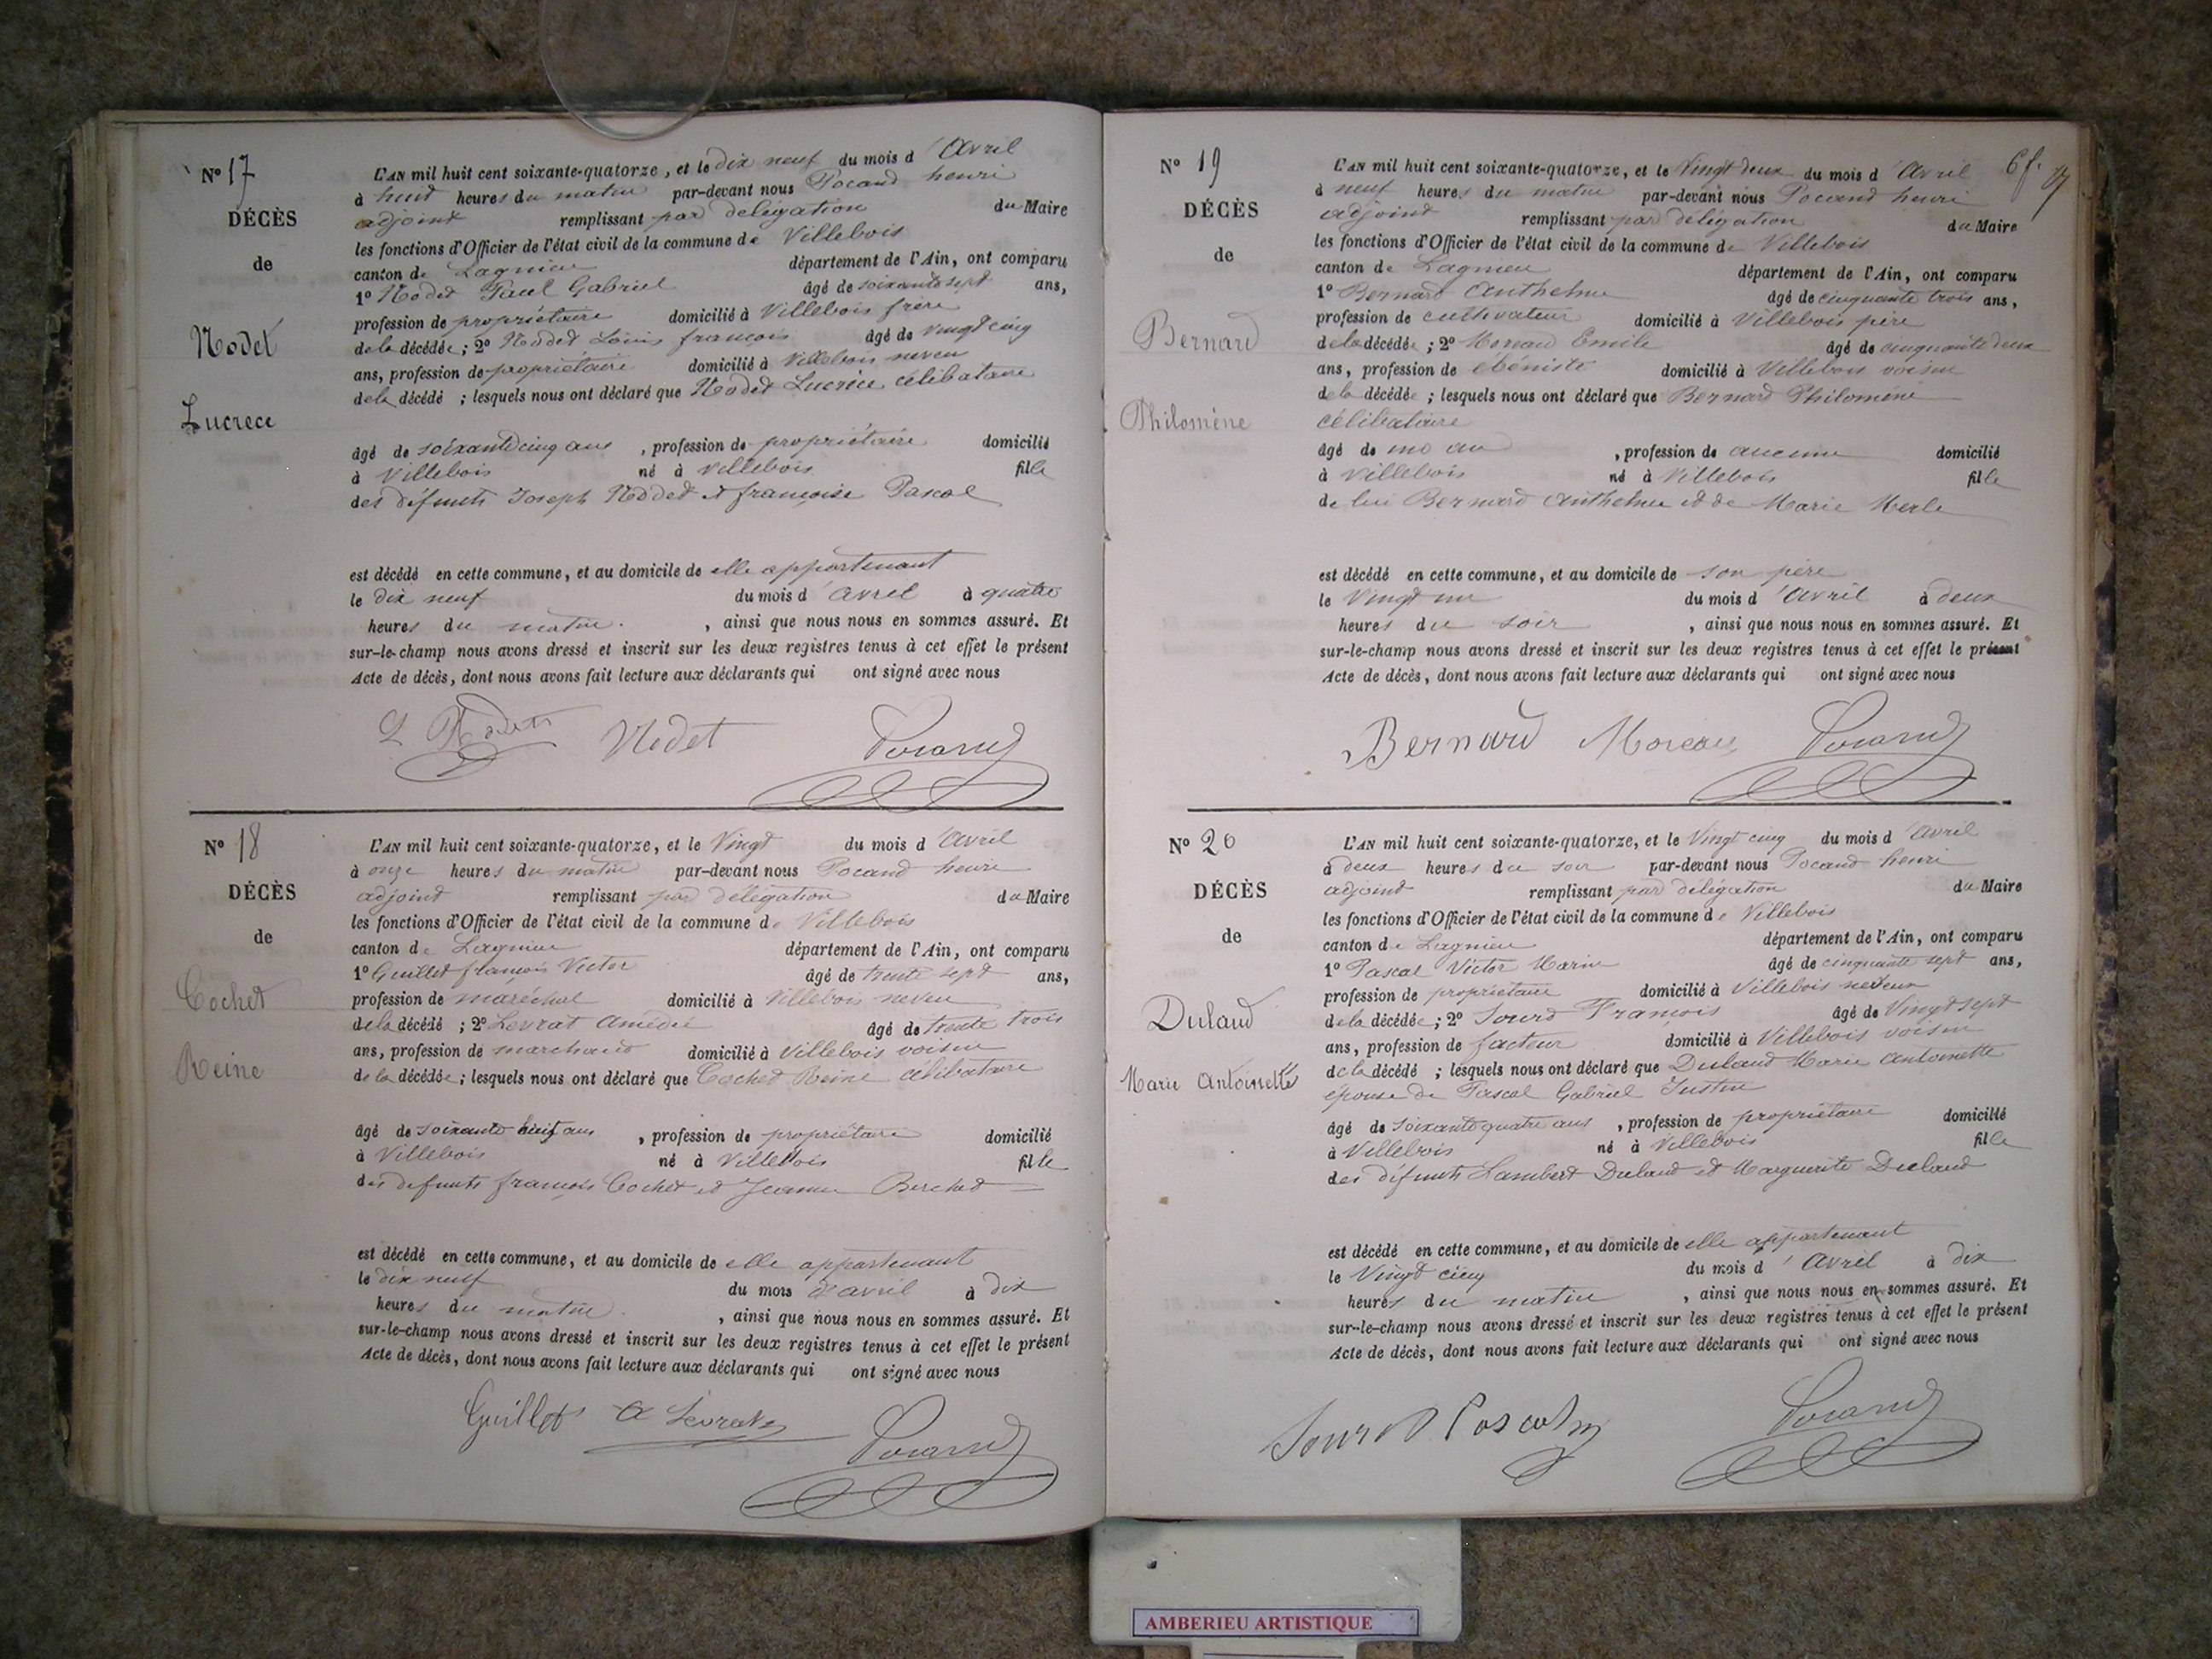 N° 17
DÉCÈS
de
Nodet
Lucrece
L'AN mil huit cent soixante-quatorze, et le dix neuf du mois d'Avril
à huit heures du matin par-devant nous Pocand henri
adjoint remplissant par délégation du Maire
les fonctions d'Officier de l'état civil de la commune de Villebois
canton de Lagnieu département de l'Ain, ont comparu
1° Nodet Paul Gabriel âgé de soixante sept ans,
profession de propriétaire domicilié à Villebois frère
de la décédée; 2° Nodet Louis françois âgé de vingt cinq
ans, profession de propriétaire domicilié à Villebois neveu
de la décédé ; lesquels nous ont déclaré que Nodet Lucrèce célibataire
âgé de soixante cinq ans , profession de propriétaire domicilié
à Villebois né à Villebois fille
des défunts Joseph Nodet et françoise Pascal
est décédé en cette commune, et au domicile de elle appartenant
le dix neuf du mois d'Avril à quatre
heures du matin. , ainsi que nous nous en sommes assuré. Et
sur-le-champ nous avons dressé et inscrit sur les deux registres tenus à cet effet le présent
Acte de décès, dont nous avons fait lecture aux déclarants qui ont signé avec nous
L Nodet Nodet Pocand
N° 18
DÉCÈS
de
Cochet
Reine
L'AN mil huit cent soixante-quatorze, et le Vingt du mois d'Avril
à onze heures du matin par-devant nous Pocand henri
adjoint remplissant par délégation du Maire
les fonctions d'Officier de l'état civil de la commune de Villebois
canton de Lagnieu département de l'Ain, ont comparu
1° Guillet françois Victor âgé de trente sept ans,
profession de maréchal domicilié à Villebois neveu
de la décédé ; 2° Levrat Amédée âgé de trente trois
ans, profession de marchand domicilié à Villebois voisin
de la décédée; lesquels nous ont déclaré que Cochet Reine célibataire
âgé de soixante huit ans , profession de propriétaire domicilié
à Villebois né à Villebois fille
des défunts françois Cochet et Jeanne Berchet
est décédé en cette commune, et au domicile de elle appartenant
le dix neuf du mois d'avril à dix
heures du matin. , ainsi que nous nous en sommes assuré. Et
sur-le-champ nous avons dressé et inscrit sur les deux registres tenus à cet effet le présent
Acte de décès, dont nous avons fait lecture aux déclarants qui ont signé avec nous
Guillet A Levrat Pocand
6 f.
N° 19
DÉCÈS
de
Bernard
Philomène
L'AN mil huit cent soixante-quatorze, et le Vingt deux du mois d'Avril
à neuf heures du matin par-devant nous Pocand henri
adjoint remplissant par délégation du Maire
les fonctions d'Officier de l'état civil de la commune de Villebois
canton de Lagnieu département de l'Ain, ont comparu
1° Bernard Anthelme âgé de cinquante trois ans,
profession de cultivateur domicilié à Villebois père
de la décédée ; 2° Moreau Emile âgé de cinquante deux
ans, profession de ébéniste domicilié à Villebois voisin
de la décédée ; lesquels nous ont déclaré que Bernard Philomène
célibataire
âgé de , profession de aucune domicilié
à Villebois né à Villebois fille
de lui Bernard Anthelme et de Marie Merle
est décédé en cette commune, et au domicile de son père
le Vingt un du mois d'Avril à deux
heures du soir , ainsi que nous nous en sommes assuré. Et
sur-le-champ nous avons dressé et inscrit sur les deux registres tenus à cet effet le présent
Acte de décès, dont nous avons fait lecture aux déclarants qui ont signé avec nous
Bernard Moreau Pocand
N° 20
DÉCÈS
de
Dulaud
Marie Antoinette
L'AN mil huit cent soixante-quatorze, et le Vingt cinq du mois d'Avril
à deux heures du soir par-devant nous Pocand henri
adjoint remplissant par délégation du Maire
les fonctions d'Officier de l'état civil de la commune de Villebois
canton de Lagnieu département de l'Ain, ont comparu
1° Pascal Victor Marin âgé de cinquante sept ans,
profession de propriétaire domicilié à Villebois neveux
de la décédée; 2° Sourd François âgé de Vingt sept
ans, profession de facteur domicilié à Villebois voisin
de la décédé ; lesquels nous ont déclaré que Dulaud Marie Antoinette
épouse de Pascal Gabriel Justin
âgé de soixante quatre ans , profession de propriétaire domicilié
à Villebois né à Villebois fille
des défunts Lambert Dulaud et Marguerite Dulaud
est décédé en cette commune, et au domicile de elle appartenant
le Vingt cinq du mois d'Avril à dix
heures du matin , ainsi que nous nous en sommes assuré. Et
sur-le-champ nous avons dressé et inscrit sur les deux registres tenus à cet effet le présent
Acte de décès, dont nous avons fait lecture aux déclarants qui ont signé avec nous
Sourd Pascal Pocand
AMBERIEU ARTISTIQUE